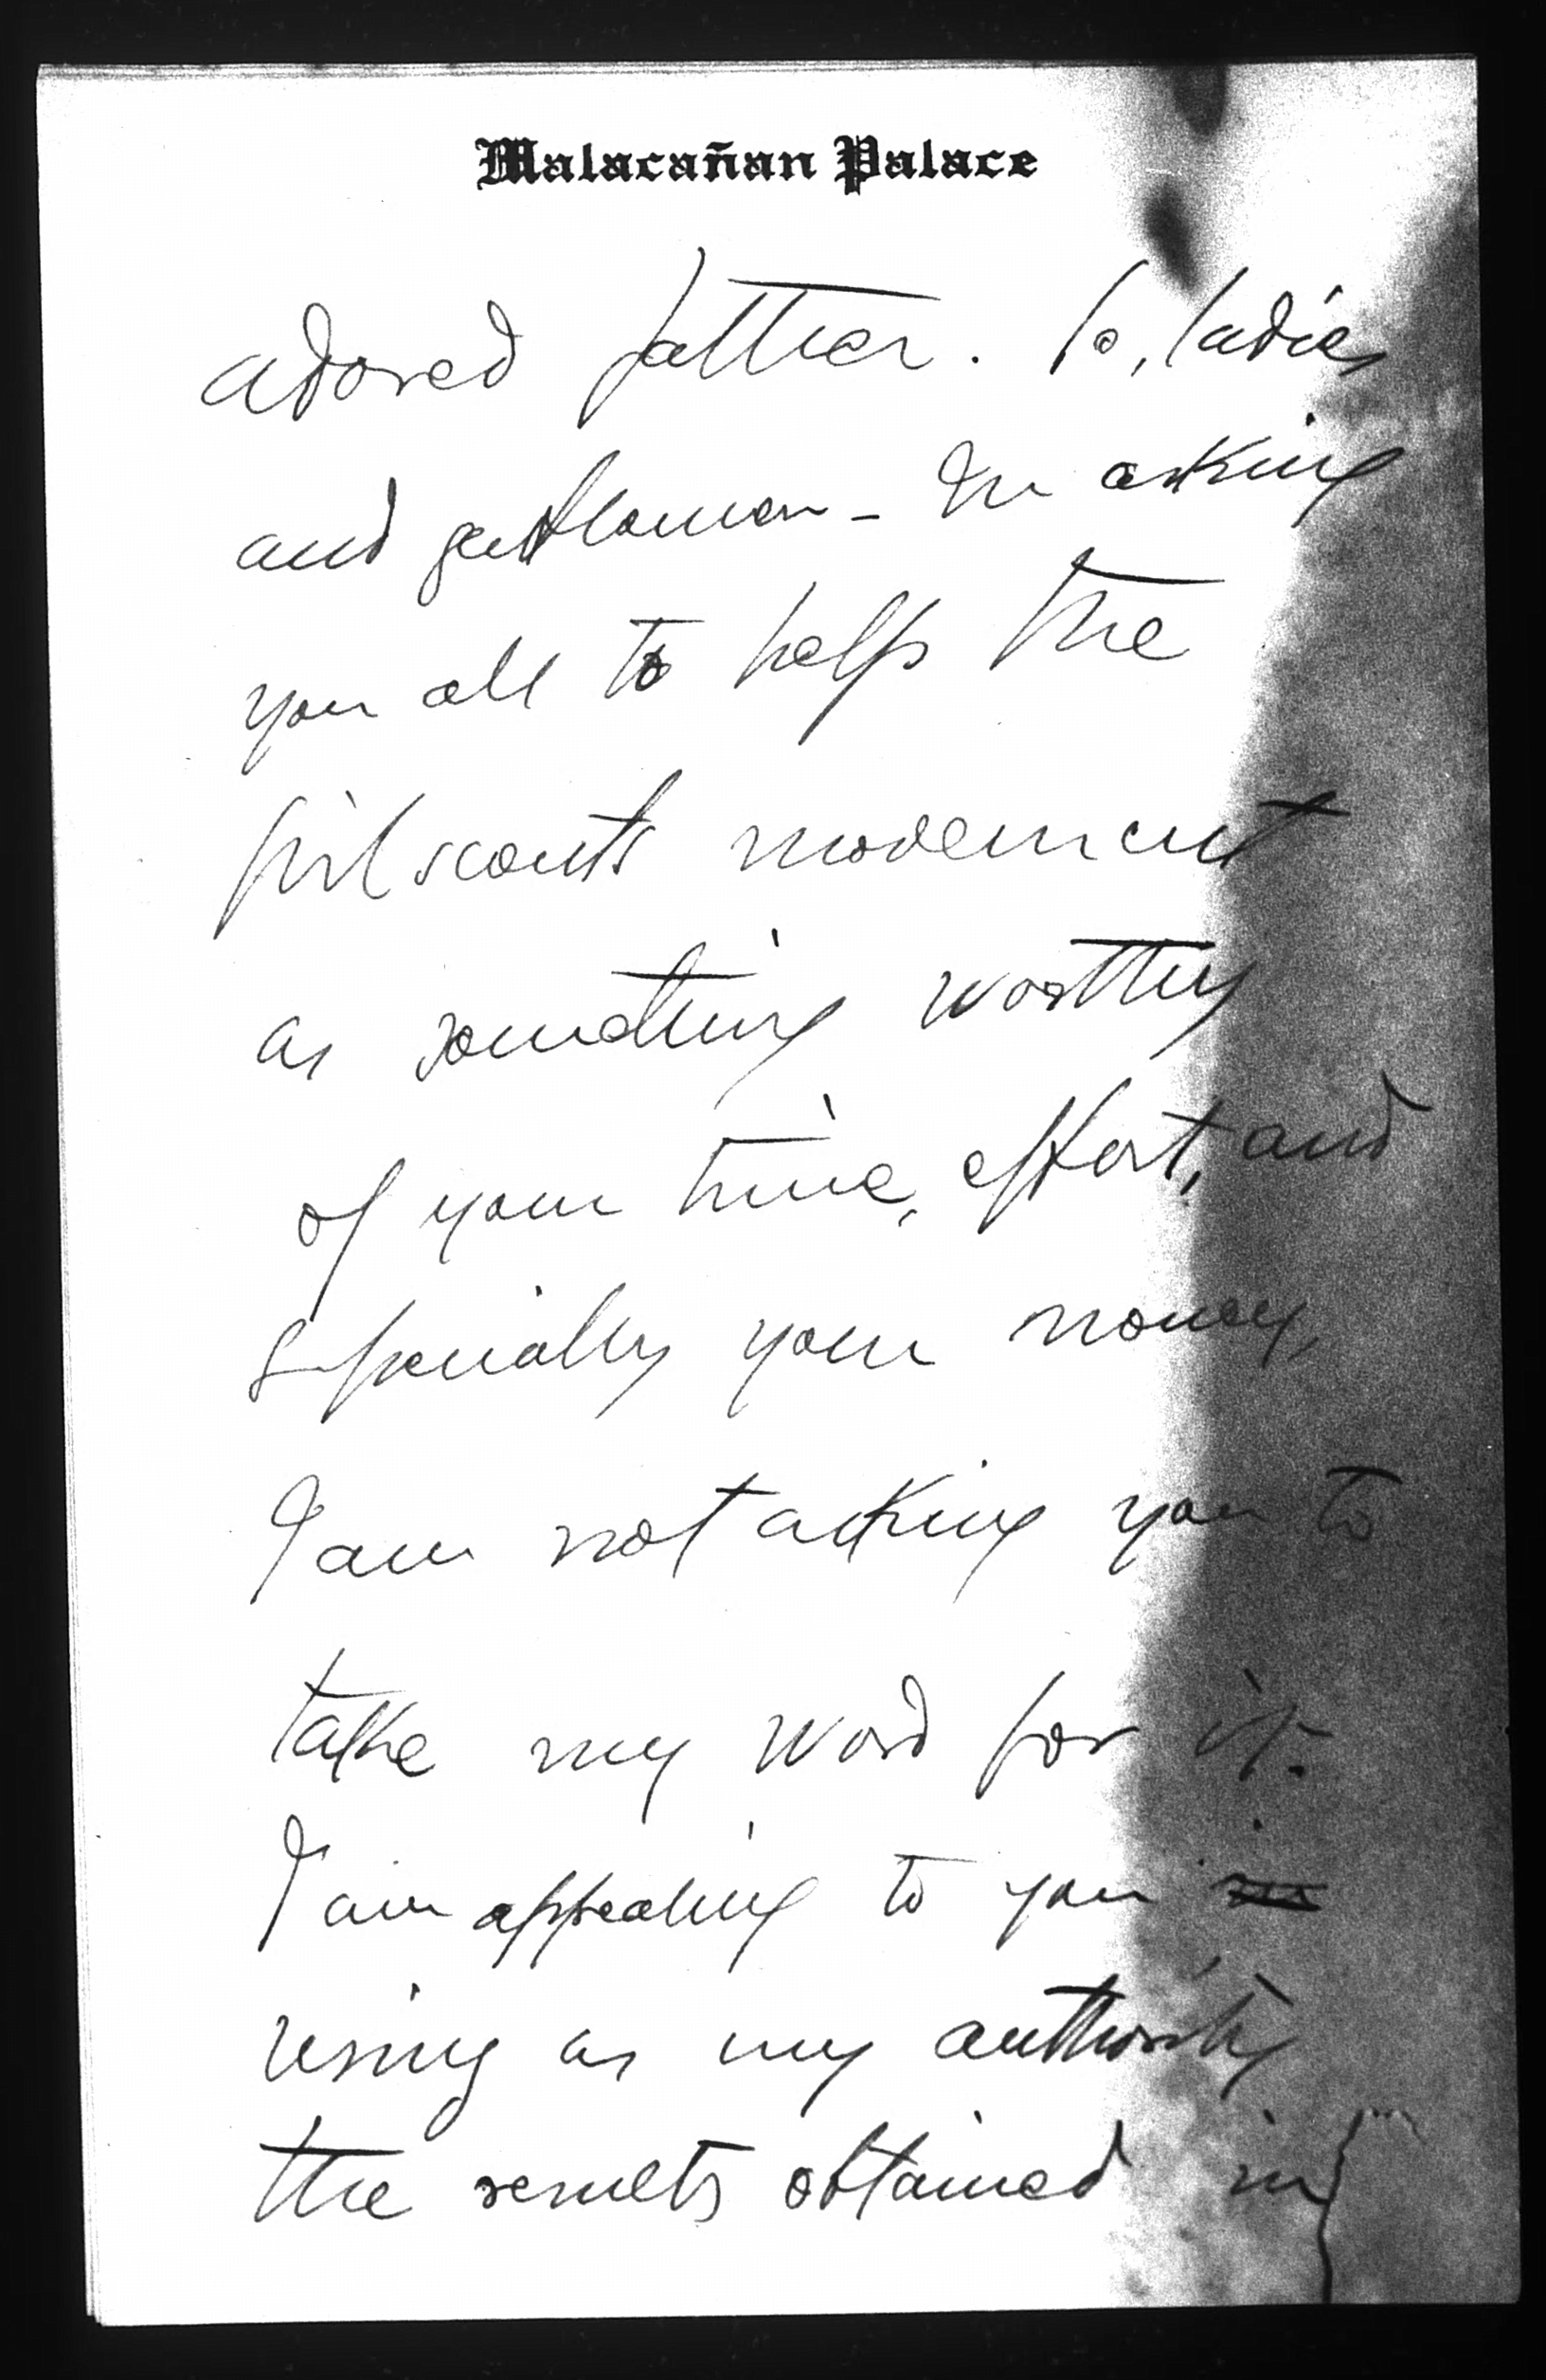 Malacañan Palace
adored father. So, ladies
and gentlemen – In asking
you all to help the
girl scouts movement
as something worthy
of your time, effort, and
specially your money,
I am not asking you to
take my word for it.
I am appealing to you
using as my authority
the results obtained in